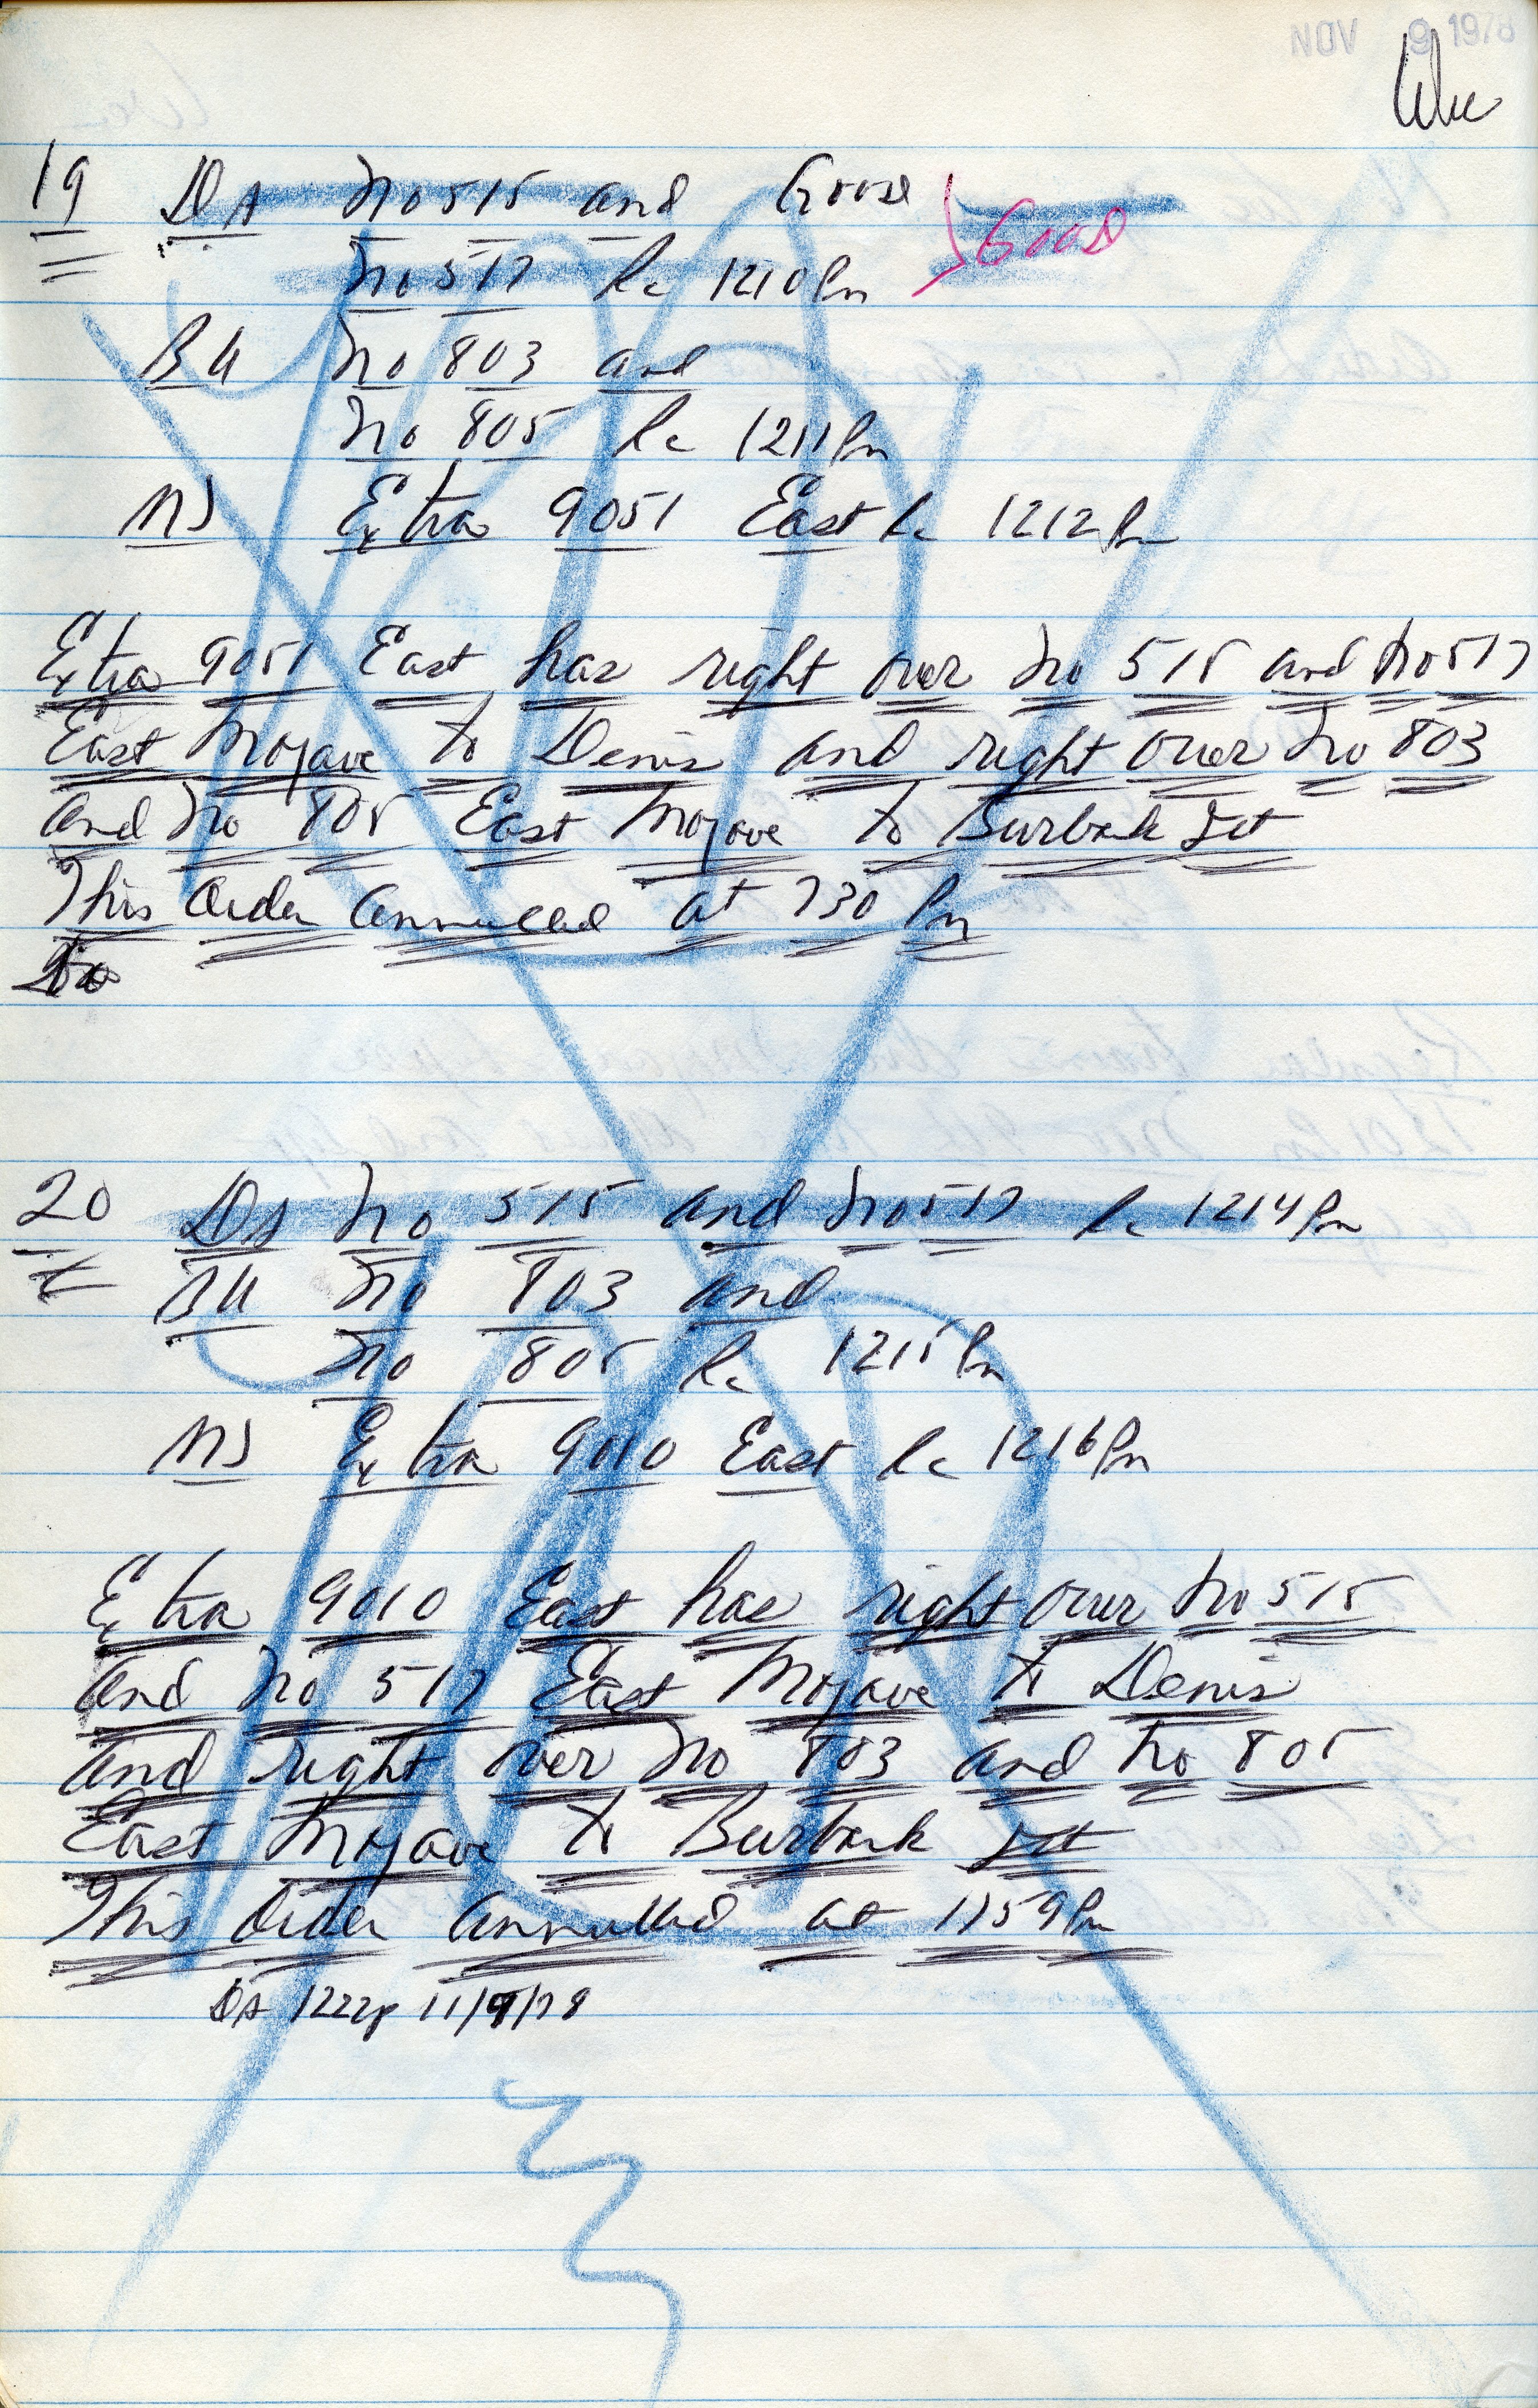 NOV 9 1978
19 DS No 515 and Goose
Good
No 517 Rc 1210 Pm
BU No 803 and
No 805 Rc 1211 Pm
MJ Extra 9051 East Rc 1212 Pm
Extra 9051 East has right over No 515 and No 517
East Mojave to Denis and right over No 803
and No 805 East Mojave to Burbank Jct
This Order annulled at 730 Pm
20 DS No 515 and No 517 Rc 1214 Pm
BU No 803 and
No 805 Rc 1215 Pm
MJ Extra 9010 East Rc 1216 Pm
Extra 9010 East has right over No 515
and No 517 East Mojave to Denis
and right over No 803 and No 805
East Mojave to Burbank Jct
This Order annulled at 1159 Pm
DS 1222p 11/9/78